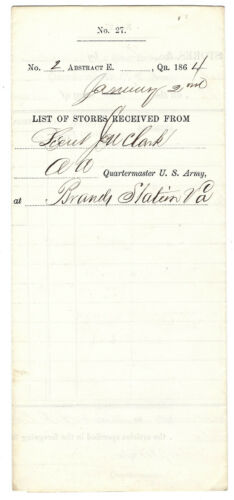 No. 27.
No. 2 Abstract E. , Qr. 1864
January 2nd
LIST OF STORES RECEIVED FROM
Lieut J M Clark
A A Quartermaster U. S. Army,
at Brandy Station Va